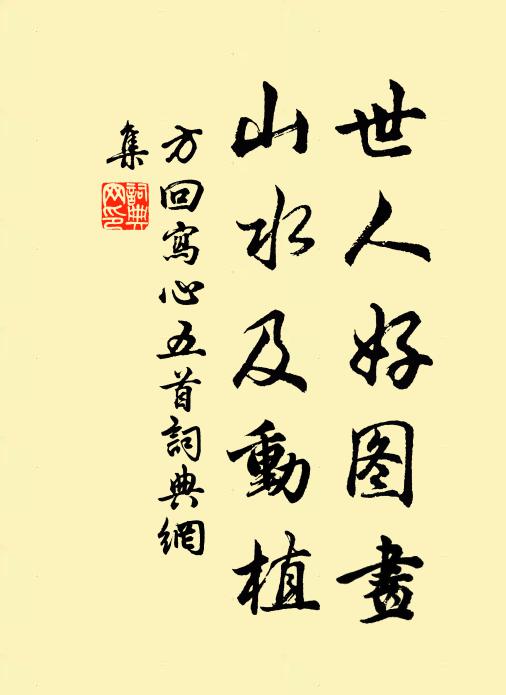 世人好图畫
山水及動植
方回寫心五首詞典網
集
詞典网印